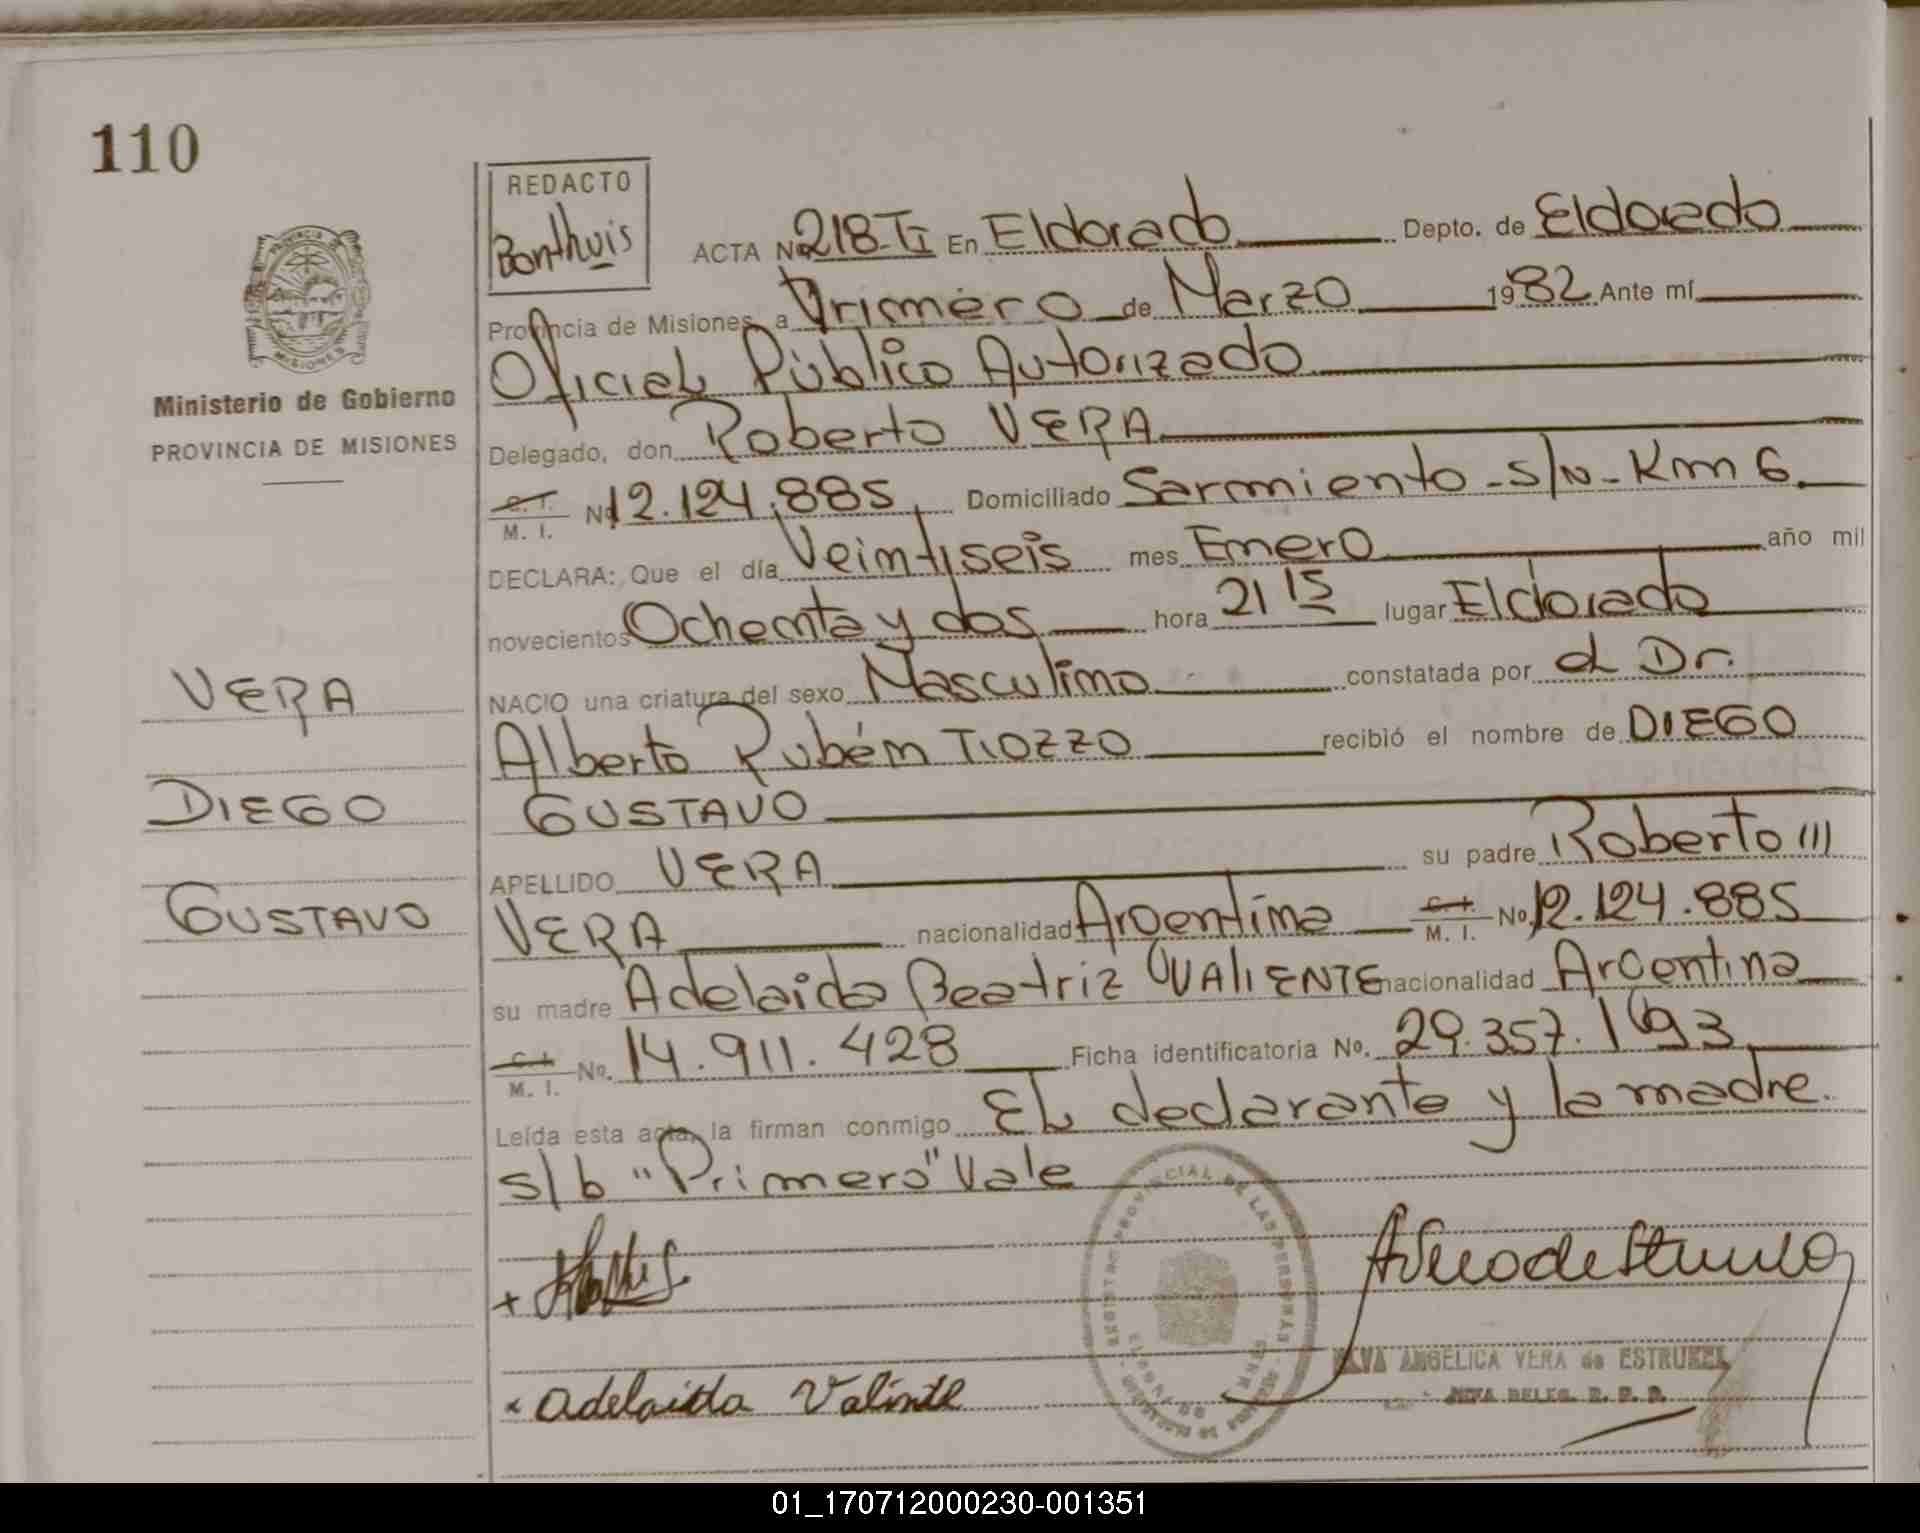 110
REDACTO
Bonthuis
ACTA Nº 218-TI En Eldorado Depto. de Eldorado
Provincia de Misiones, a Primero de Marzo 1982 Ante mí
Oficial Público Autorizado
Delegado, don Roberto VERA
C. I. / M. I. Nº 12.124.885 Domiciliado Sarmiento - S/N - Km 6
DECLARA: Que el día Veintiseis mes Enero año mil
novecientos Ochenta y dos hora 21 15 lugar Eldorado
NACIO una criatura del sexo Masculino constatada por el Dr.
Alberto Rubén TIOZZO recibió el nombre de DIEGO
GUSTAVO
APELLIDO VERA su padre Roberto ///
VERA nacionalidad Argentina C. I. / M. I. No. 12.124.885
su madre Adelaida Beatriz VALIENTE nacionalidad Argentina
C. I. / M. I. No. 14.911.428 Ficha identificatoria No. 29.357.193
Leída esta acta, la firman conmigo El declarante y la madre.
s/b "Primero" Vale
Adelaida Valiente
REGISTRO PROVINCIAL DE LAS PERSONAS
ELVA ANGELICA VERA de ESTRUKEL
JEFA DELEG. R. P. P.
PROVINCIA DE
MISIONES
Ministerio de Gobierno
PROVINCIA DE MISIONES
VERA
DIEGO
GUSTAVO
01_170712000230-001351